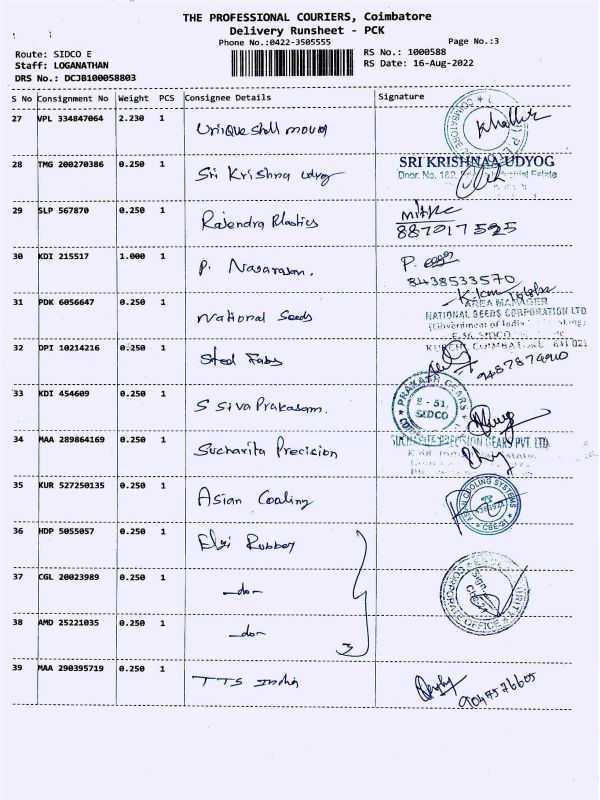 THE PROFESSIONAL COURIERS, Coimbatore
Delivery Runsheet - PCK
Phone No.:0422-3505555
Page No.:3
Route: SIDCO E
RS No.: 1000588
Staff: LOGANATHAN
RS Date: 16-Aug-2022
DRS No.: DCJB100058803
S No Consignment No Weight PCS Consignee Details Signature
27 VPL 334847064 2.230 1 Unique shell mould
28 TMG 200270386 0.250 1 Sri Krishna udyog
SRI KRISHNAA UDYOG
Door. No. 182, Industrial Estate
29 SLP 567870 0.250 1 Rajendra Plastics
887017525
30 KDI 215517 1.000 1 P. Nagarajan.
P.
8438533570
31 PDK 6056647 0.250 1 National Seeds
AREA MANAGER
NATIONAL SEEDS CORPORATION LTD
(Government of India
E-36 SIDCO
KURICHI, COIMBATORE 641 021
32 DPI 10214216 0.250 1 Steel Fabs
33 KDI 454609 0.250 1 S Siva Prakasam.
PRAKASH GEARS
E-51,
SIDCO
34 MAA 289864169 0.250 1 Sucharita Precision
SUCHARITE PRECISION GEARS PVT. LTD
E-68
35 KUR 527250135 0.250 1 Asian Cooling
ASIAN COOLING SYSTEMS
CBE-21
36 HDP 5055057 0.250 1 Elgi Rubber
37 CGL 20023989 0.250 1 -do-
CORPORATE OFFICE
38 AMD 25221035 0.250 1 -do-
3
39 MAA 290395719 0.250 1 TTS India
9047576605